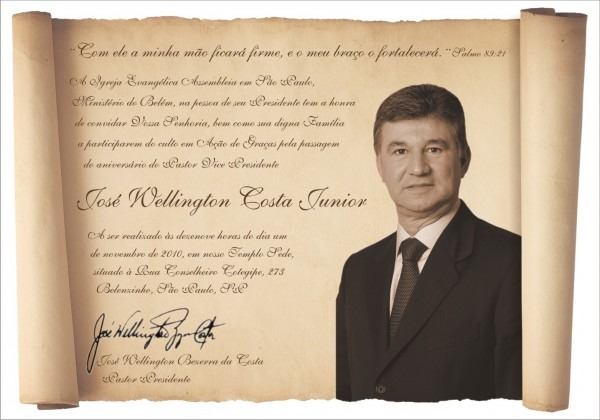 "Com ele a minha mão ficará firme, e o meu braço o fortalecerá." Salmo 89:21
A Igreja Evangélica Assembleia em São Paulo,
Ministério do Belém, na pessoa de seu Presidente tem a honra
de convidar Vossa Senhoria, bem como sua digna Família
a participarem do culto em Ação de Graças pela passagem
do aniversário do Pastor Vice Presidente
José Wellington Costa Junior
A ser realizado às dezenove horas do dia um
de novembro de 2010, em nosso Templo Sede,
situado à Rua Conselheiro Cotegipe, 273
Belenzinho, São Paulo, SP
José Wellington Bezerra da Costa
Pastor Presidente